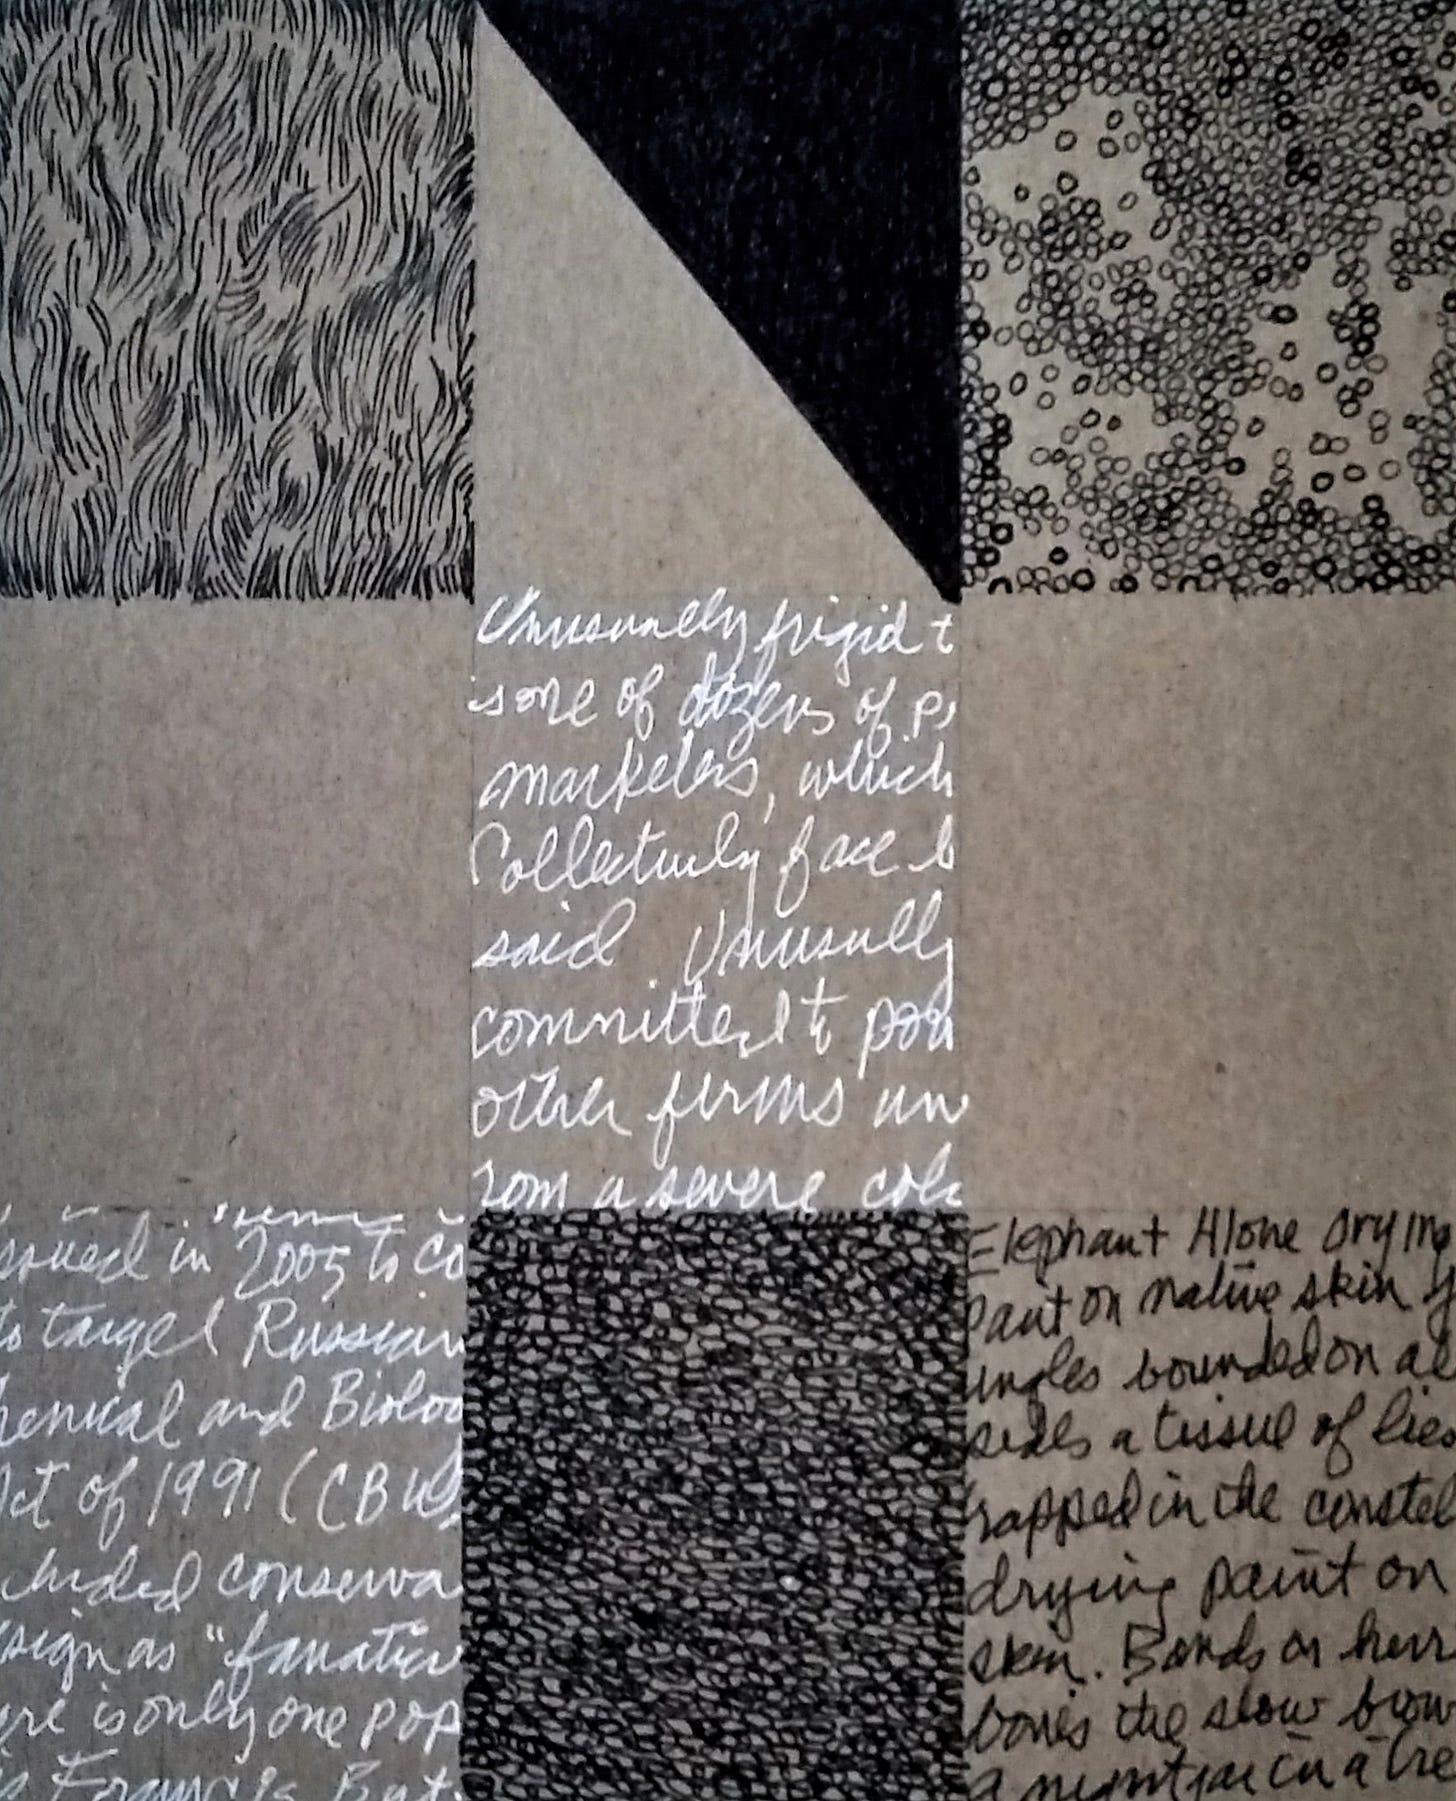 Unusually frigid t
is one of dozens of p
marketers, which
Collectively face b
said. Unusually
committed to pow
other firms un
rom a severe col
ssued in 2005 to co
to target Russian
hemical and Biolog
Act of 1991 (CBW
cluded conserva
sign as "fanatic
ere is only one pop
Elephant Alone drying
paint on native skin
ungles bounded on al
sides a tissue of lies
rapped in the constel
drying paint on
skin. Bands on her
bones the slow brow
a nightjar in a tree